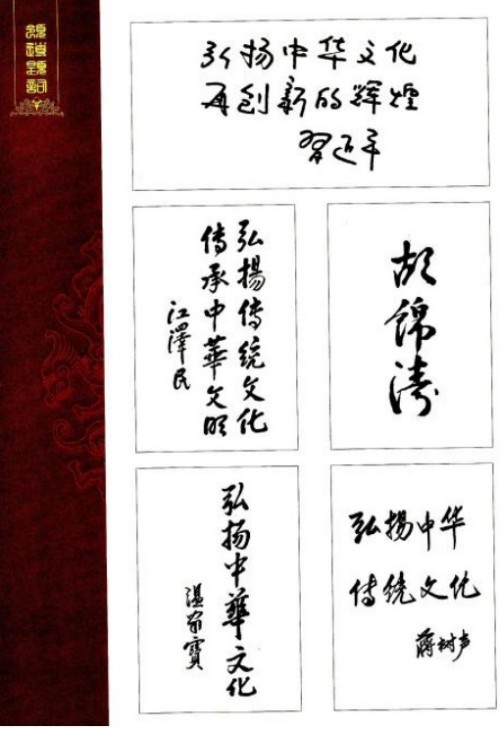 领导题词
弘扬中华文化
再创新的辉煌
習近平
弘揚傳统文化
传承中華文明
江澤民
胡錦濤
弘扬中華文化
温家寶
弘揚中华
传统文化
蒋树声